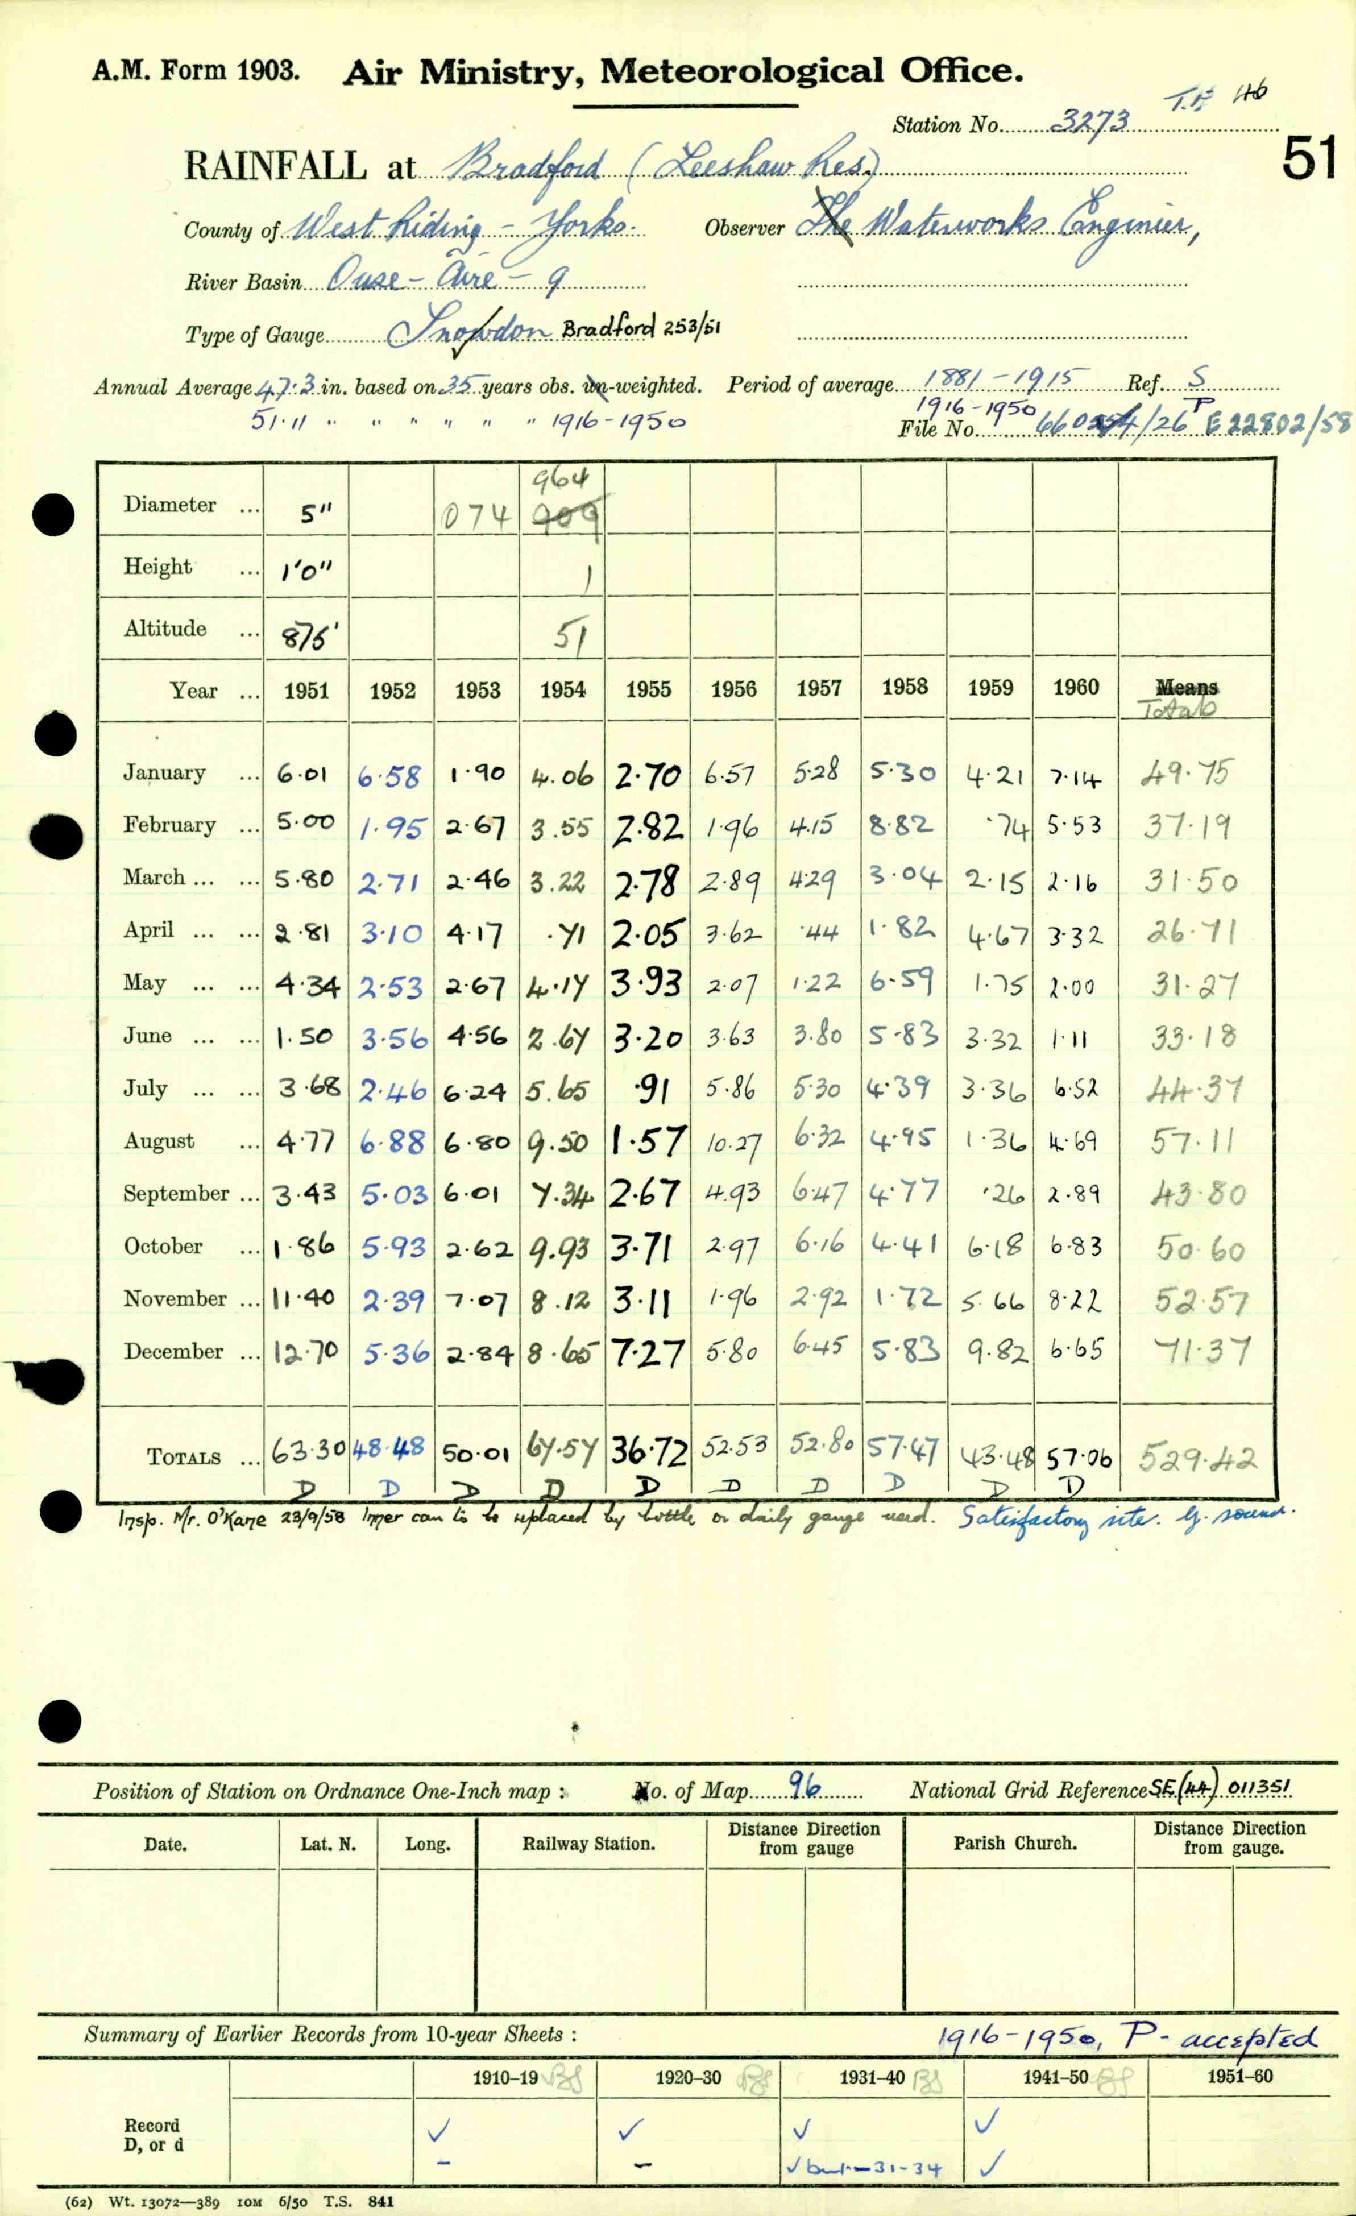 A.M. Form 1903. Air Ministry, Meteorological Office.
Station No. 3273 46
51
RAINFALL at Bradford (Leeshaw Res.)
County of West Riding - Yorks. Observer The Waterworks Enginier,
River Basin Ouse - Aire - 9
Type of Gauge Snowdon Bradford 253/51
Annual Average 47.3 in. based on 35 years obs. un-weighted. Period of average 1881-1915 Ref. S
51.11 " " " " " " 1916-1950 1916-1950 P
File No. /26 E22802/58
964
Diameter ... 5" 074 909
Height ... 1'0" 1
Altitude ... 875' 51
Year ... 1951 1952 1953 1954 1955 1956 1957 1958 1959 1960 Means
Totals
January ... 6.01 6.58 1.90 4.06 2.70 6.57 5.28 5.30 4.21 7.14 49.75
February ... 5.00 1.95 2.67 3.55 2.82 1.96 4.15 8.82 .74 5.53 37.19
March ... ... 5.80 2.71 2.46 3.22 2.78 2.89 4.29 3.04 2.15 2.16 31.50
April ... ... 2.81 3.10 4.17 .71 2.05 3.62 .44 1.82 4.67 3.32 26.71
May ... ... 4.34 2.53 2.67 4.17 3.93 2.07 1.22 6.59 1.75 2.00 31.27
June ... ... 1.50 3.56 4.56 2.67 3.20 3.63 3.80 5.83 3.32 1.11 33.18
July ... ... 3.68 2.46 6.24 5.65 .91 5.86 5.30 4.39 3.36 6.52 44.37
August ... 4.77 6.88 6.80 9.50 1.57 10.27 6.32 4.95 1.36 4.69 57.11
September ... 3.43 5.03 6.01 7.34 2.67 4.93 6.47 4.77 .26 2.89 43.80
October ... 1.86 5.93 2.62 9.93 3.71 2.97 6.16 4.41 6.18 6.83 50.60
November ... 11.40 2.39 7.07 8.12 3.11 1.96 2.92 1.72 5.66 8.22 52.57
December ... 12.70 5.36 2.84 8.65 7.27 5.80 6.45 5.83 9.82 6.65 71.37
TOTALS ... 63.30 48.48 50.01 67.57 36.72 52.53 52.80 57.47 43.48 57.06 529.42
D D D D D D D D D D
Insp. Mr. O'Kane 23/9/58 Inner can to be replaced by bottle or daily gauge used. Satisfactory site. G. sound.
Position of Station on Ordnance One-Inch map : No. of Map 96 National Grid Reference SE(44) 011351
Date. Lat. N. Long. Railway Station. Distance from Direction gauge Parish Church. Distance from Direction gauge.
Summary of Earlier Records from 10-year Sheets : 1916-1950, P - accepted
1910-19 1920-30 1931-40 1941-50 1951-60
Record ✓ ✓ ✓ ✓
D, or d - - ✓ but - 31-34 ✓
(62) Wt. 13072—389 10M 6/50 T.S. 841